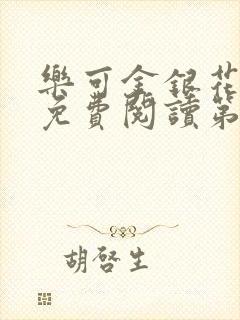 樂可金銀花
免費閱讀第
胡啓生